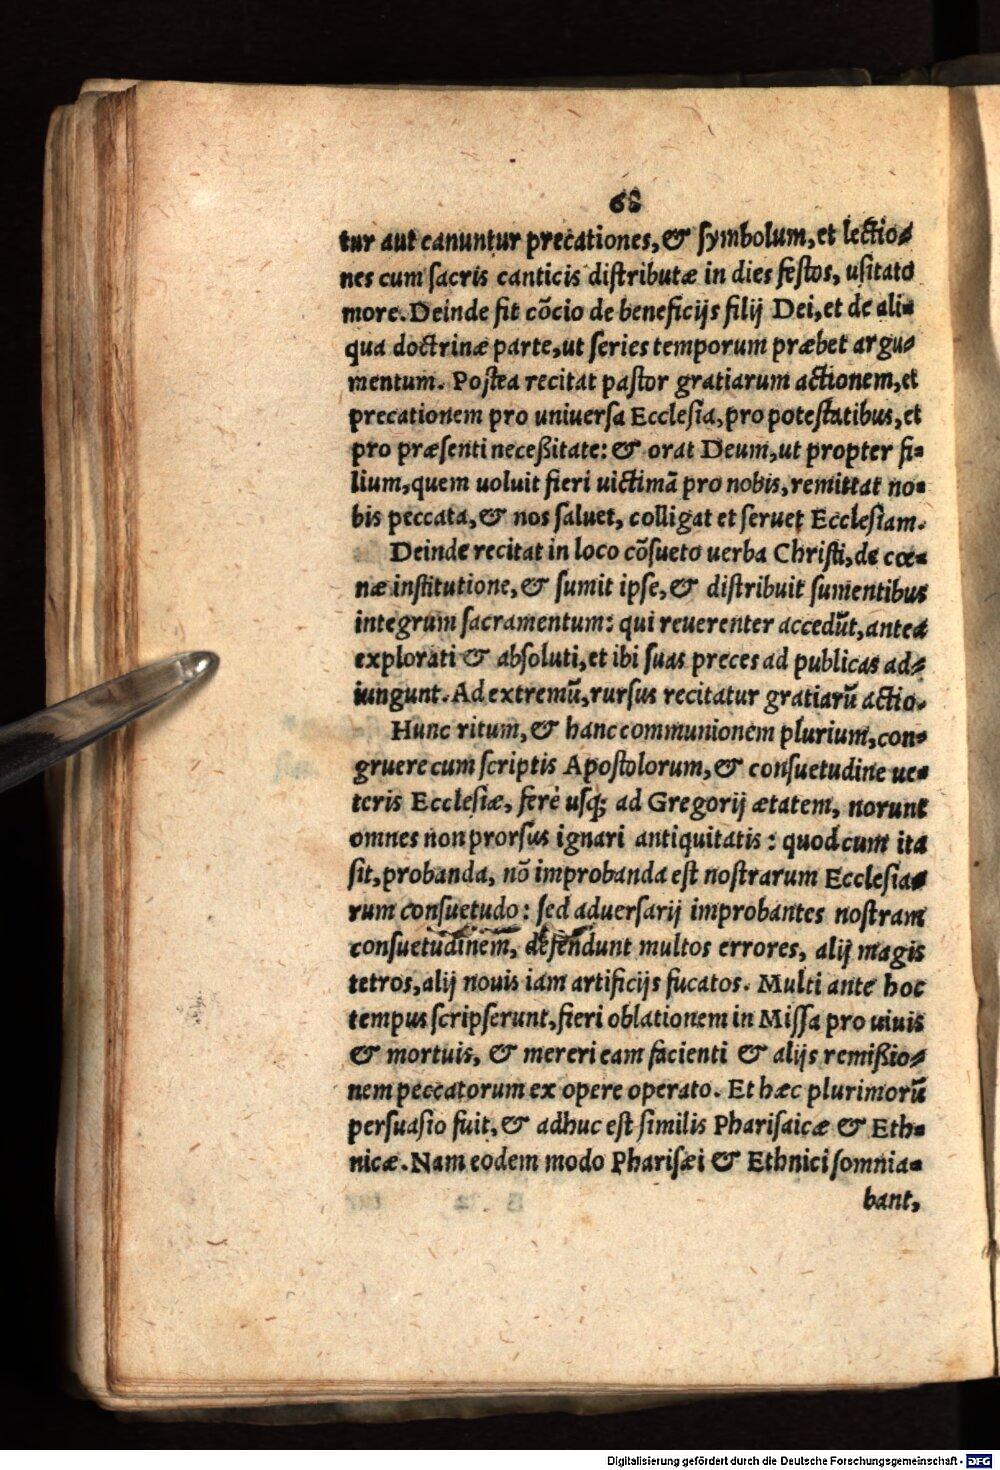 68
tur aut canuntur precationes, & ſymbolum, et lectio-
nes cum ſacris canticis diſtributæ in dies feſtos, uſitato
more. Deinde fit cõcio de beneficijs filij Dei, et de ali-
qua doctrinæ parte, ut ſeries temporum præbet argu-
mentum. Poſtea recitat paſtor gratiarum actionem, et
precationem pro uniuerſa Eccleſia, pro poteſtatibus, et
pro præſenti neceßitate: & orat Deum, ut propter fi-
lium, quem uoluit fieri uictimã pro nobis, remittat no-
bis peccata, & nos ſaluet, colligat et ſeruet Eccleſiam.
Deinde recitat in loco cõſueto uerba Chriſti, de cœ-
næ inſtitutione, & ſumit ipſe, & diſtribuit ſumentibus
integrum ſacramentum: qui reuerenter accedũt, antea
explorati & abſoluti, et ibi ſuas preces ad publicas ad-
iungunt. Ad extremũ, rurſus recitatur gratiarũ actio.
Hunc ritum, & hanc communionem plurium, con-
gruere cum ſcriptis Apoſtolorum, & conſuetudine ue-
teris Eccleſiæ, ferè uſq; ad Gregorij ætatem, norunt
omnes non prorſus ignari antiquitatis: quod cum ita
ſit, probanda, nõ improbanda eſt noſtrarum Eccleſia-
rum conſuetudo: ſed aduerſarij improbantes noſtram
conſuetudinem, defendunt multos errores, alij magis
tetros, alij nouis iam artificijs fucatos. Multi ante hoc
tempus ſcripſerunt, fieri oblationem in Miſſa pro uiuis
& mortuis, & mereri eam facienti & alijs remißio-
nem peccatorum ex opere operato. Et hæc plurimorũ
perſuaſio fuit, & adhuc eſt ſimilis Phariſaicæ & Eth-
nicæ. Nam eodem modo Phariſæi & Ethnici ſomnia-
bant,
Digitalisierung gefördert durch die Deutsche Forschungsgemeinschaft - DFG